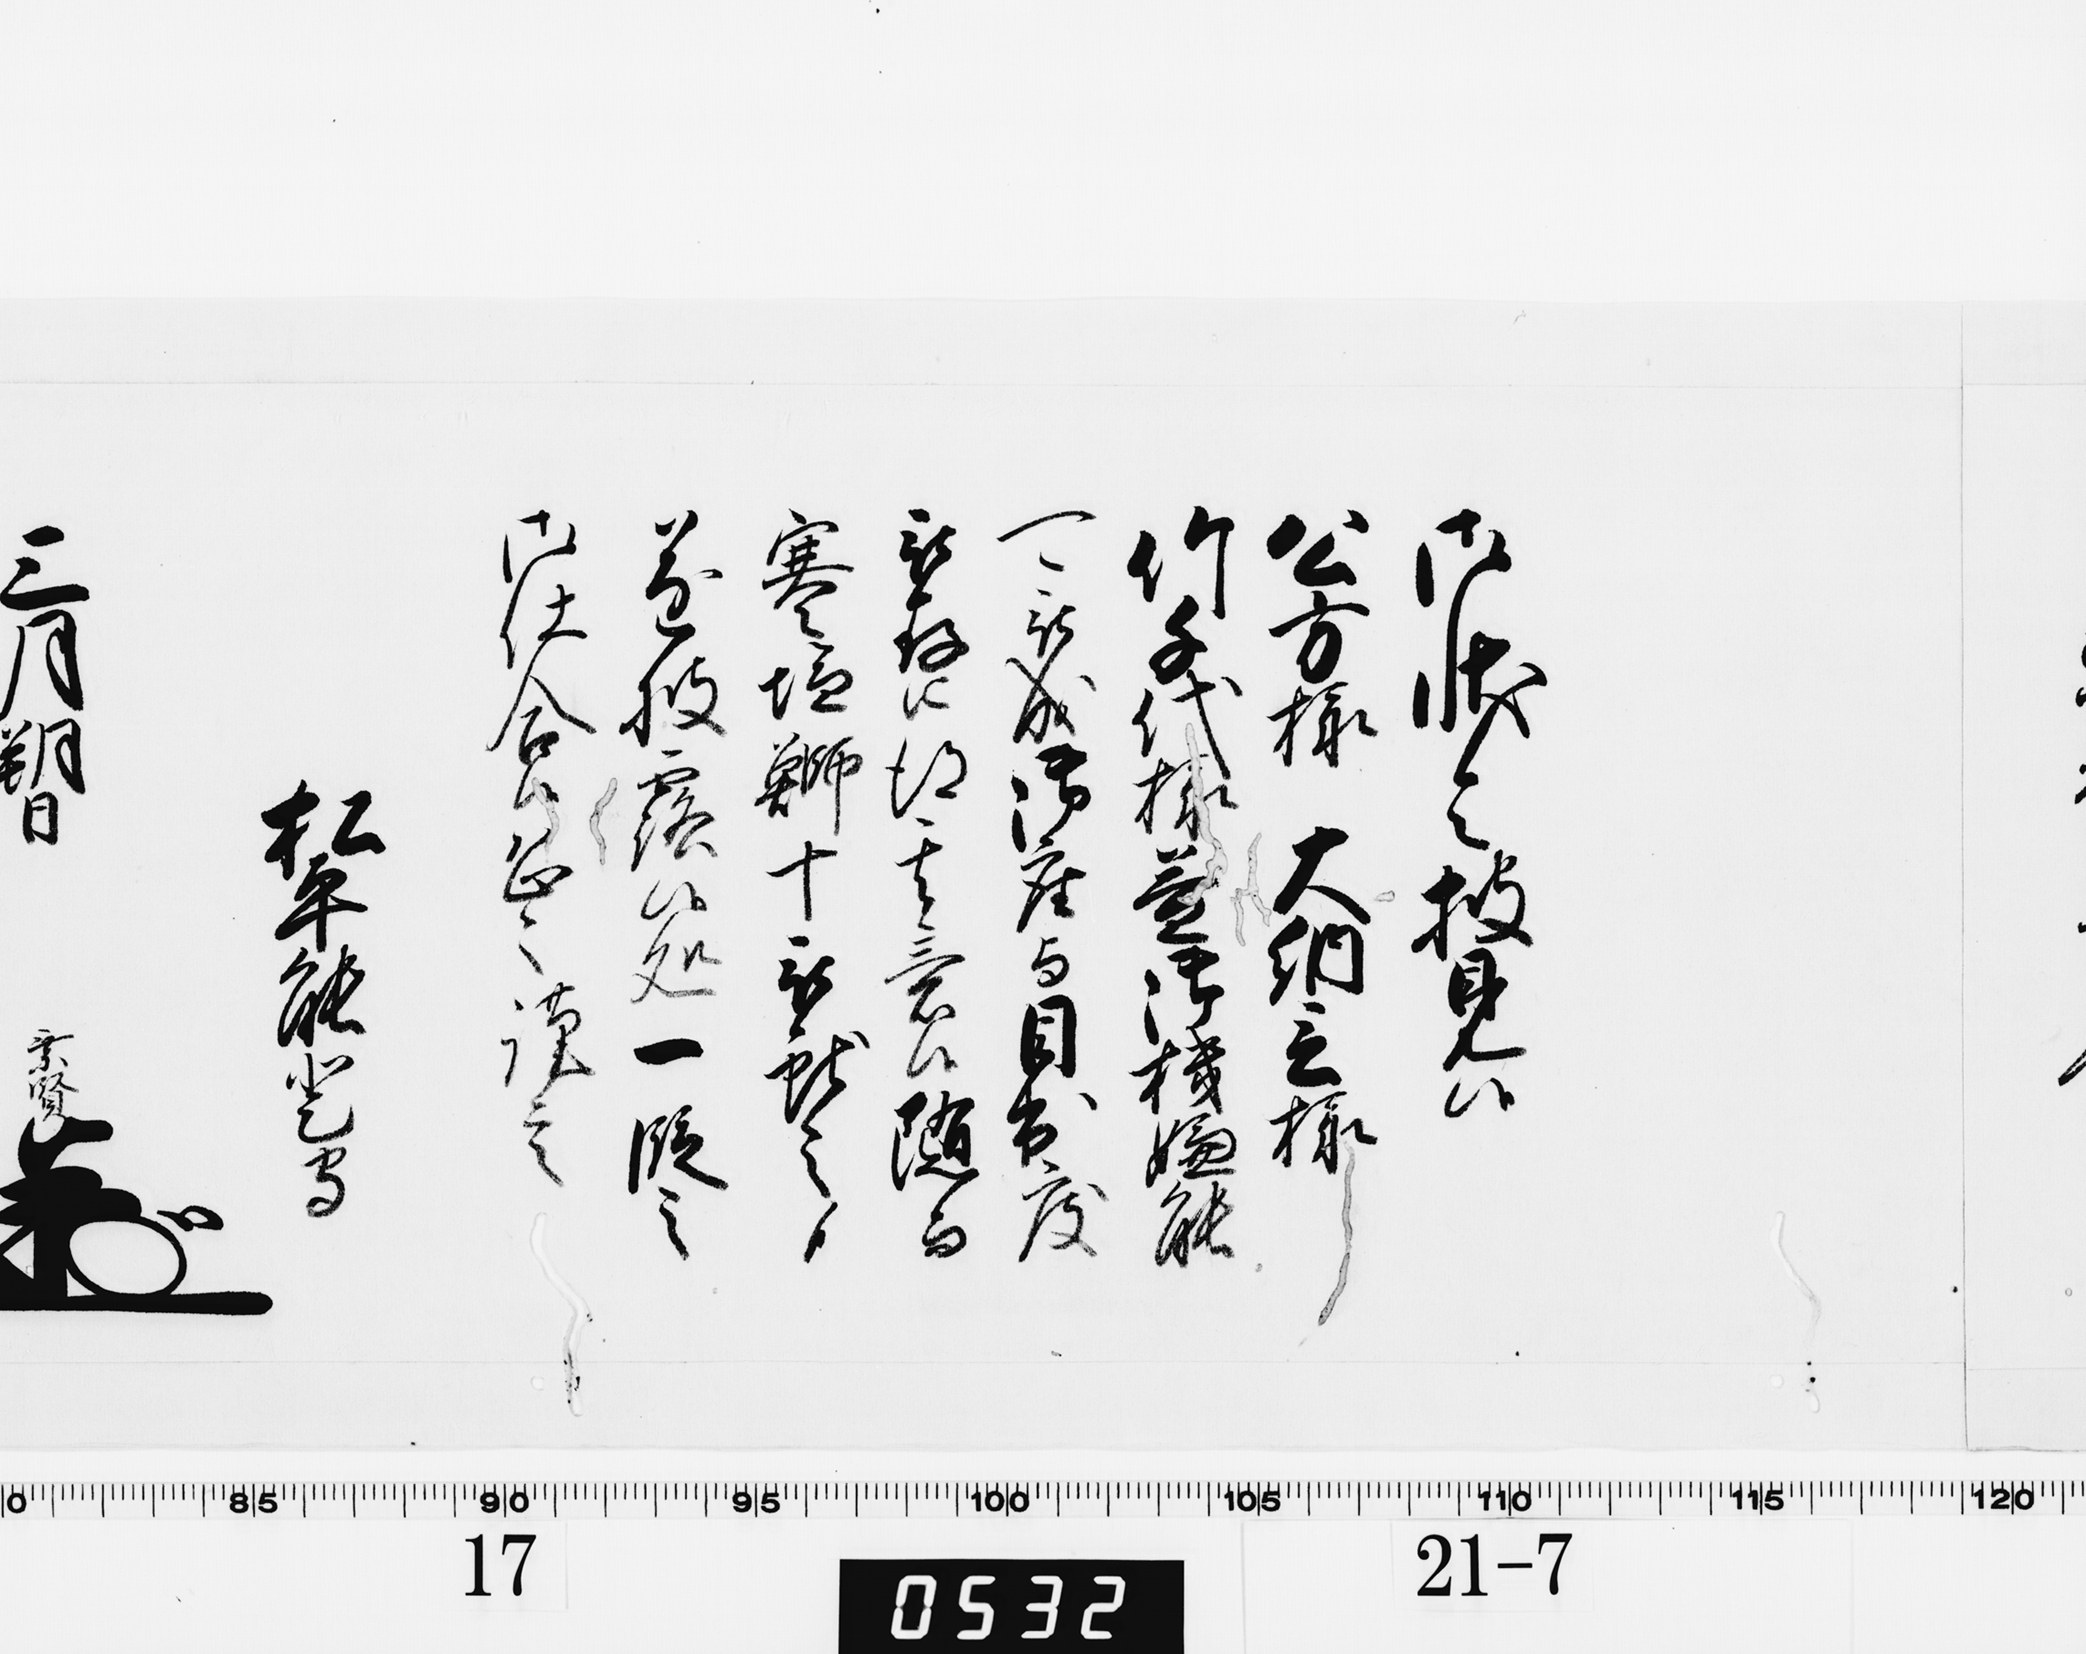 御状令披見候
公方様　大納言様
竹千代様益御機嫌能
可被成御座与目出度
被存候得其意候随而
寒塩鰤十被献之
遂披露候処一段之
御仕合候恐々謹言
松平能登守
三月朔日 乗賢
0 85 90 95 100 105 110 115 120
17
0532
21-7